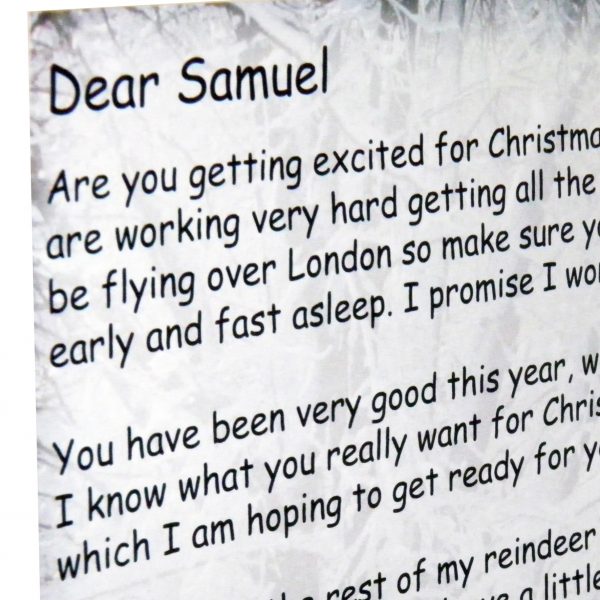 Dear Samuel
Are you getting excited for Christma
are working very hard getting all the
be flying over London so make sure y
early and fast asleep. I promise I wo
You have been very good this year, w
I know what you really want for Chris
which I am hoping to get ready for y
rest of my reindeer
a little